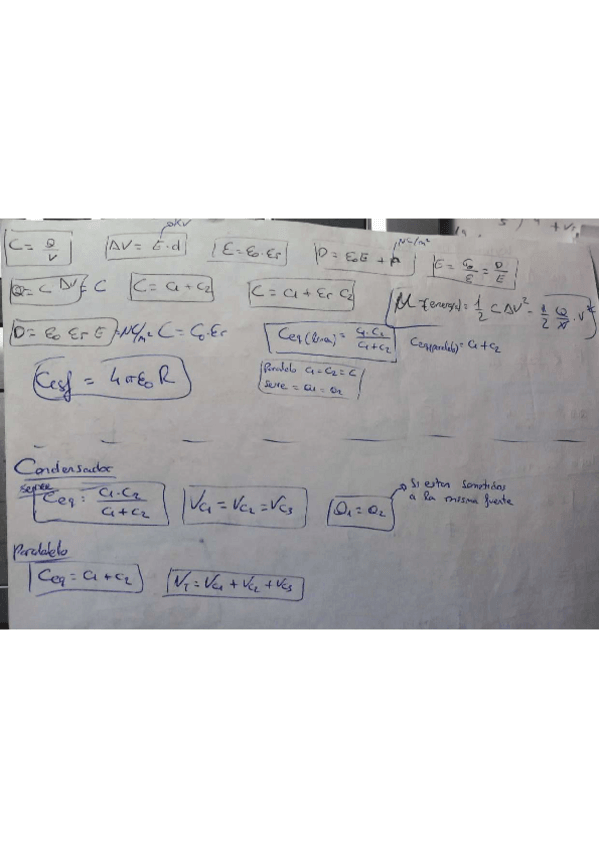 C = Q/V   ΔV = E·d   E = E₀·Er   D = E₀E + P   NC/m²   E = D/E
Q = C ΔV = C   C = C1 + C2   C = C1 + Er C2   (energía) = 1/2 C ΔV² = 1/2 Q/V · V²
D = E₀ Er E = NC/m²   C = C₀·Er   Ceq = C1·C2/C1+C2   Ceq(paralelo) = C1 + C2
Cesf = 4πE₀ R   Paralelo C1 = C2 = C
serie = Q1 = Q2
Condensador
serie
Ceq = C1·C2/C1+C2   VC1 = VC2 = VC3   Q1 = Q2   Si estan sometidos
a la misma fuente
Paralelo
Ceq = C1 + C2   VT = VC1 + VC2 + VC3